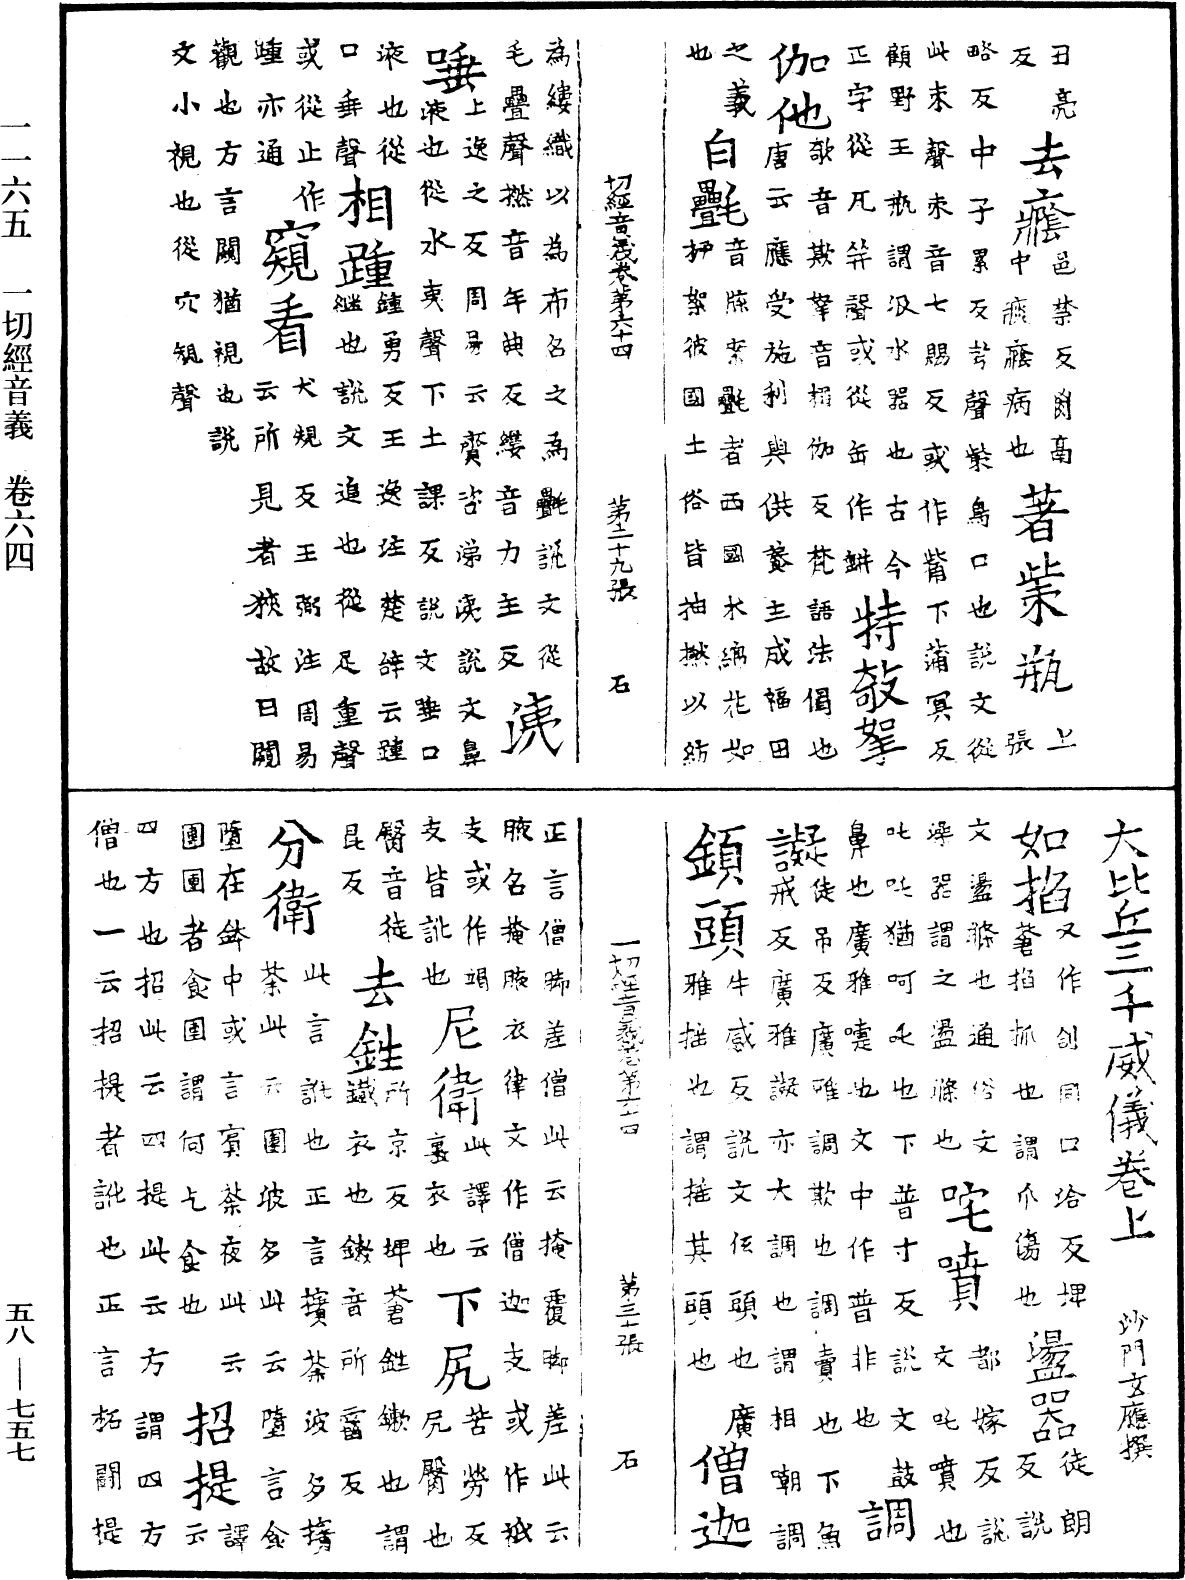 丑亮
反 去癊 邑禁反蒼
中痰癊病也 著㭰瓶 上張
略反中子累反㭰鳥口也說文從
此朿聲朿音七賜反或作觜下蒲冥反
顧野王瓶謂汲水器也古今
正字從瓦并聲或從缶作缾 特欹拏
伽他 欹音欺拏音搦伽反梵語法偈也
唐云應受施利與供養主成福田
之義
也 白㲲 音牒案㲲者西國木綿花如
柳絮彼國土俗皆抽撚以紡
切經音義卷第六十四 第二十九張 石
為縷織以為布名之為㲲說文從
毛疊聲撚音年典反縷音力主反 洟
上逸之反周易云齎咨涕洟說文鼻
唾 液也從水夷聲下土課反說文唾口
液也從
口垂聲 相踵 鍾勇反王逸注楚辭云踵
繼也說文追也從足重聲
或從止作
踵亦通 窺看 犬規反王弼注周易
云所見者狹故曰闚
觀也方言闚猶視也說
文小視也從穴規聲
大比丘三千威儀卷上 沙門玄應撰
如掐 又作㓣同口洽反埤
蒼掐抓也謂爪傷也 盪器 徒朗
反說
文盪滌也通俗文
澡器謂之盪滌也 咤噴 都嫁反說
文吒噴也
吒吒猶呵吒也下普寸反說文鼓
鼻也廣雅嚏也文中作普非也 調
譺 徒吊反廣雅調欺也調賣也下魚
戒反廣雅譺亦大調也謂相嘲調
鎖頭 牛感反說文低頭也廣
雅搖也謂搖其頭也 僧迦
一切經音義卷第六十四 第三十張 石
正言僧腳差僧此云掩覆腳差此云
腋名掩腋衣律文作僧迦支或作祇
支或作竭
支皆訛也 尼衛 此譯云
裹衣也 下尻 苦勞反
尻臀也
臀音徒
昆反 去鉎 所京反埤蒼鉎鏉也謂
鐵衣也鏉音所霤反
分衛 此言訛也正言擯荼波多擯
荼此云團波多此云墮言食
墮在鉢中或言賓荼夜此云
團團者食團謂何乞食也 招提 譯
云
四方也招此云四提此云方謂四方
僧也一云招提者訛也正言柘鬪提
一一六五 一切經音義 卷六四
五八—七五七